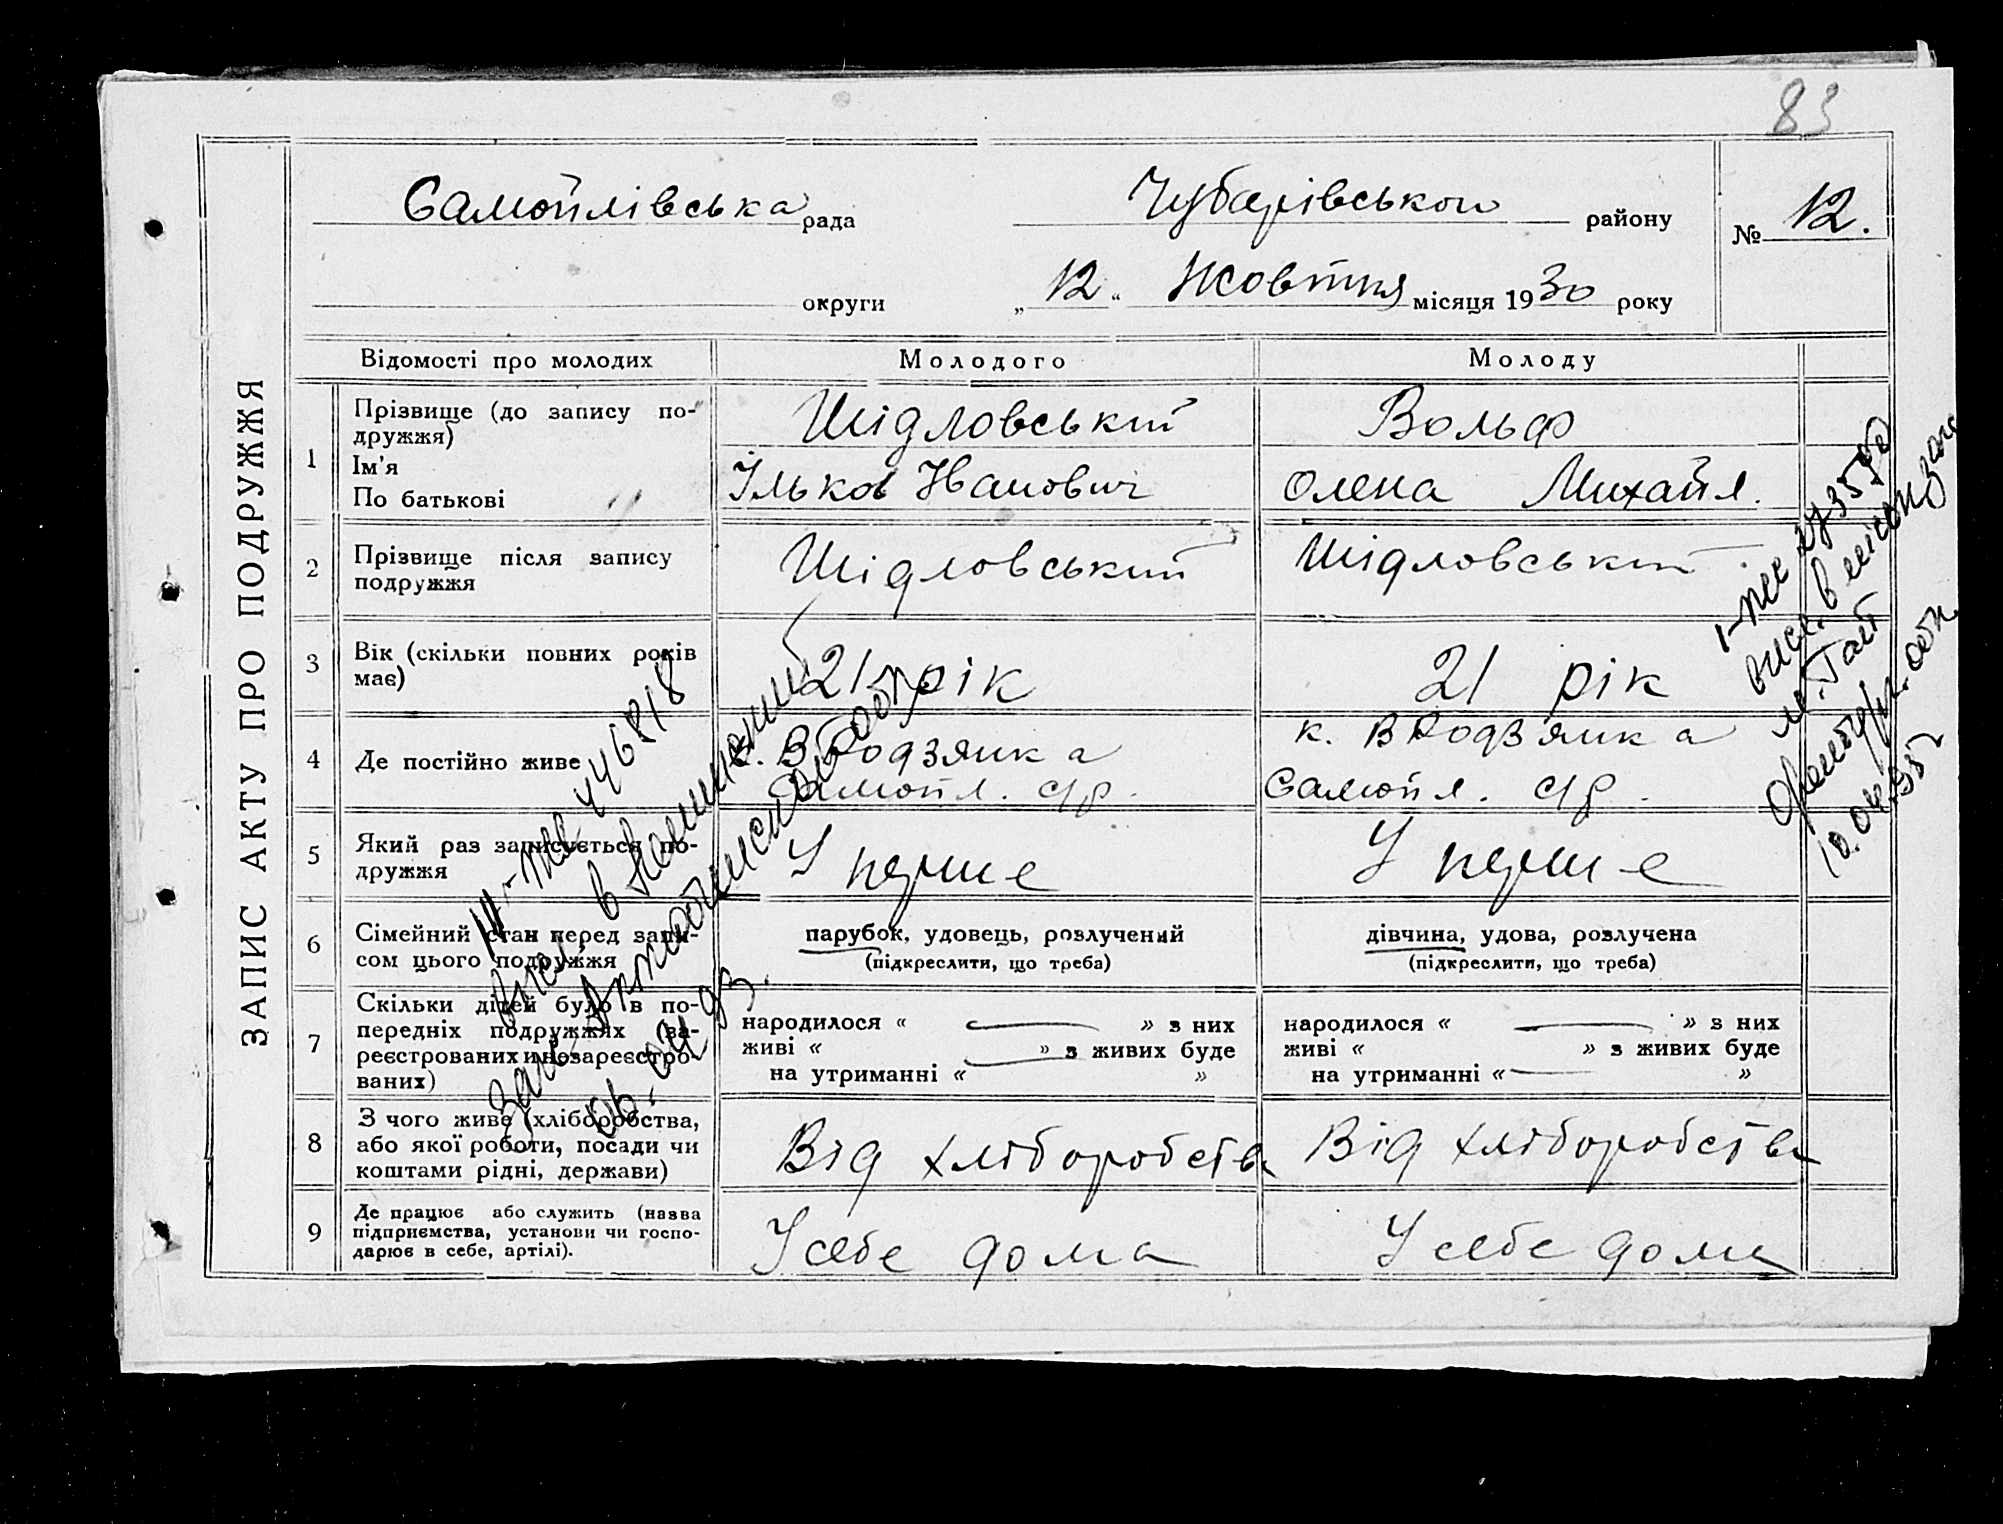 83
Самойлівська рада Чубарівськои району № 12.
округи „ 12 “ Жовтня місяця 1930 року
ЗАПИС АКТУ ПРО ПОДРУЖЖЯ
Відомості про молодих Молодого Молоду
1 Прізвище (до запису по-
дружжя) Шідловський Вольф
Ім'я
По батькові Ілько Іванович Олена Михайл.
2 Прізвище після запису
подружжя Шідловський Шідловський
3 Вік (скільки повних років
має) 21 рік 21 рік
4 Де постійно живе к. В Родзянка к. В Родзянка
Самойл. с/р. Самойл. с/р.
5 Який раз записується по-
дружжя У перше У перше
6 Сімейний стан перед запи-
сом цього подружжя
парубок, удовець, розлучений
(підкреслити, що треба)
дівчина, удова, розлучена
(підкреслити, що треба)
7 Скільки дітей було в по-
передніх подружжях (за-
реєстрованих и незареєстро-
ваних)
народилося « — » з них
живі « — » з живих буде
на утриманні « »
народилося « — » з них
живі « » з живих буде
на утриманні « — »
8 З чого живе (хліборобства,
або якої роботи, посади чи
коштами рідні, держави)
Від хліборобства Від хліборобства
9 Де працює або служить (назва
підприємства, установи чи госпо-
дарює в себе, артілі).
У себе дома У себе дома
446818
06.04.93.
м. Гай
Оренбур. обл.
10.04.95